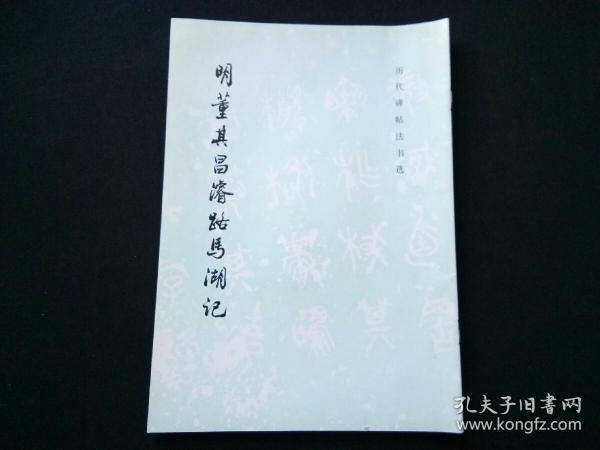 历代碑帖法书选
明董其昌濬路馬湖记
孔夫子旧書网
www.kongfz.com